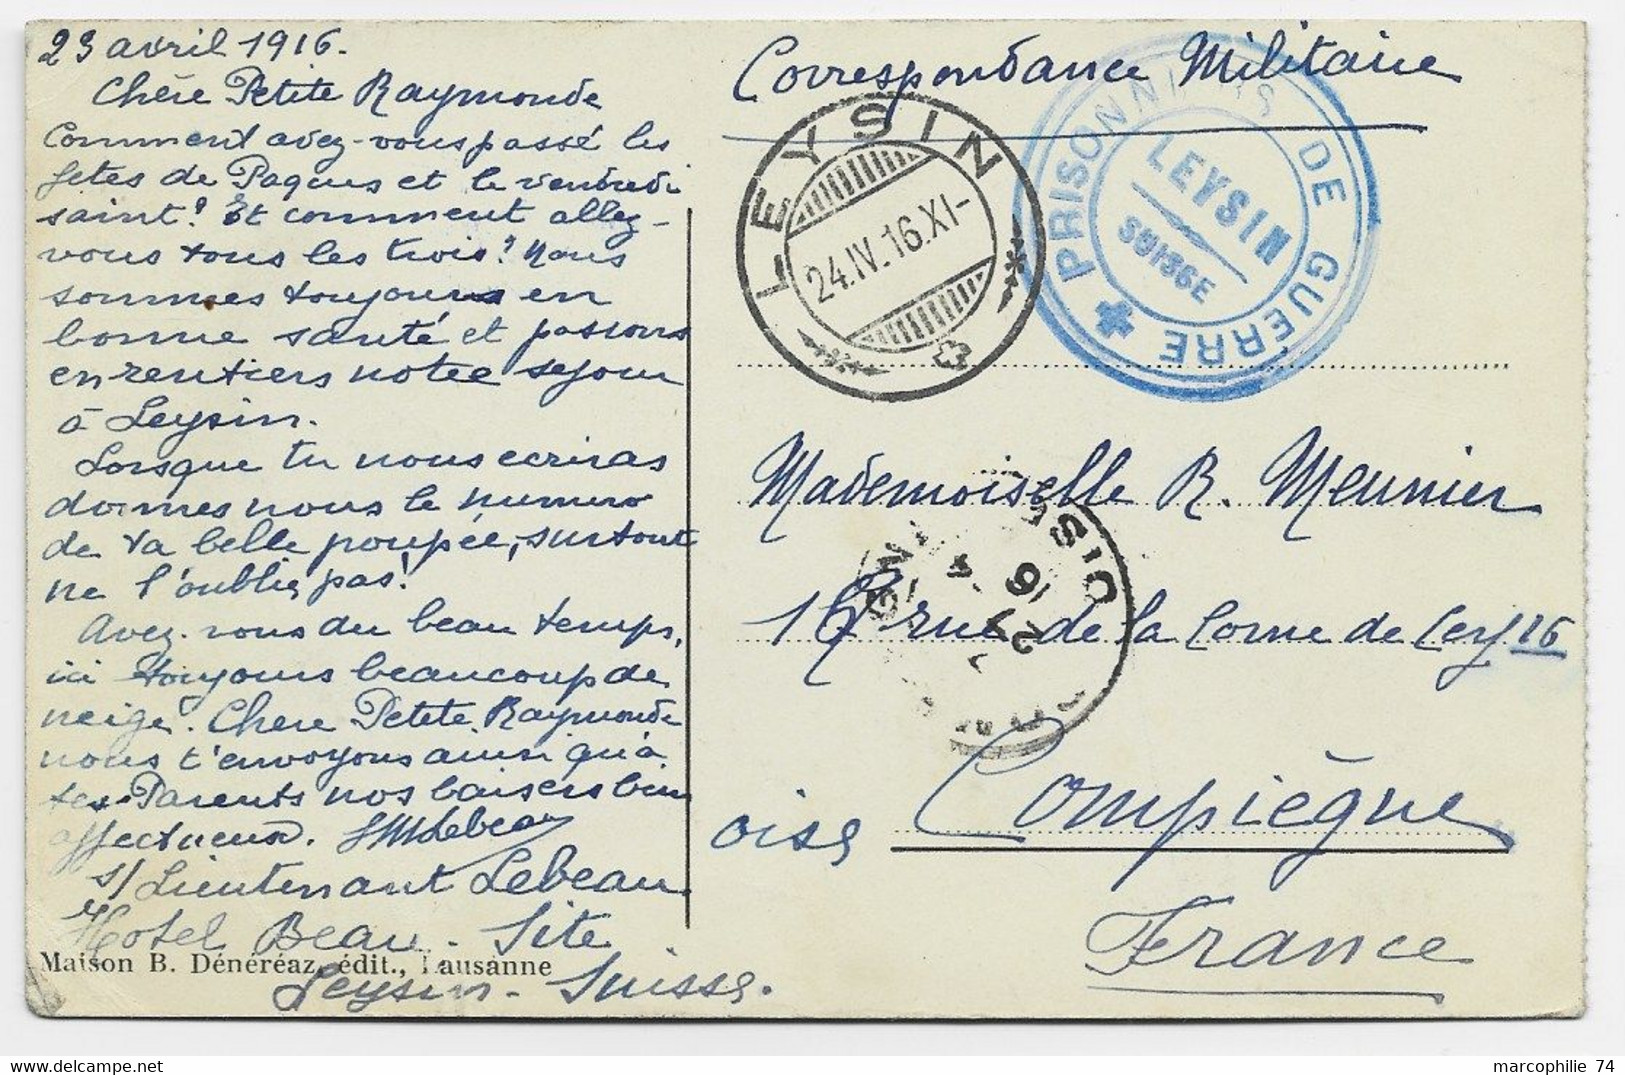 23 avril 1916.
Chère Petite Raymonde
Comment avez-vous passé les
fetes de Paques et le vendredi
saint? Et comment allez-
vous tous les trois? Nous
sommes toujours en
bonne santé et passons
en rentiers notre sejour
à Leysin.
Lorsque tu nous ecriras
donnes nous le numero
de ta belle poupée, surtout
ne l'oublie pas!
Avez-vous du beau temps,
ici toujours beaucoup de
neige. Chere Petite Raymonde
nous t'envoyons ainsi qu'à
tes Parents nos baisers bien
affectueux. Lebeau
s/Lieutenant Lebeau
Hotel Beau-Site
Leysin-Suisse.
Maison B. Dénéréaz, édit., Lausanne
Correspondance Militaire
LEYSIN
24.IV.16.XI-
PRISONNIERS DE GUERRE
LEYSIN
SUISSE
Mademoiselle R. Meunier
16 rue de la Corne de Cerf 16
OISE
16
27
Compiègne
oise
France
marcophilie 74